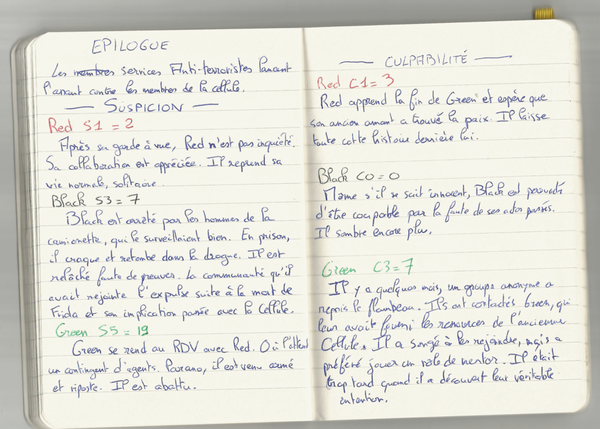 EPILOGUE
Les membres services Anti-terroristes lancent
l'assaut contre les membres de la cellule.
SUSPICION
Red S1 = 2
Après sa garde à vue, Red n'est pas inquiété.
Sa collaboration est appréciée. Il reprend sa
vie normale, solitaire.
Black S3 = 7
Black est arrêté par les hommes de la
camionette, qui le surveillaient bien. En prison,
il craque et retombe dans la drogue. Il est
relâché faute de preuves. La communauté qu'il
avait rejointe l'expulse suite à la mort de
Frida et son implication passée avec la Cellule.
Green S5 = 19
Green se rend au RDV avec Red. Où l'attend
un contingent d'agents. Parano, il est venu armé
et riposte. Il est abattu.
CULPABILITÉ
Red C1 = 3
Red apprend la fin de Green et espère que
son ancien amant a trouvé la paix. Il laisse
toute cette histoire derrière lui.
Black C0 = 0
Même s'il se sait innocent, Black est persuadé
d'être coupable par la faute de ses actes passés.
Il sombre encore plus.
Green C3 = 7
Il y a quelques mois, un groupe anonyme a
repris le flambeau. Ils ont contactés Green, qui
leur avait fourni les ressources de l'ancienne
Cellule. Il a songé à les rejoindre, mais a
préféré jouer un rôle de mentor. Il était
trop tard quand il a découvert leur véritable
intention.